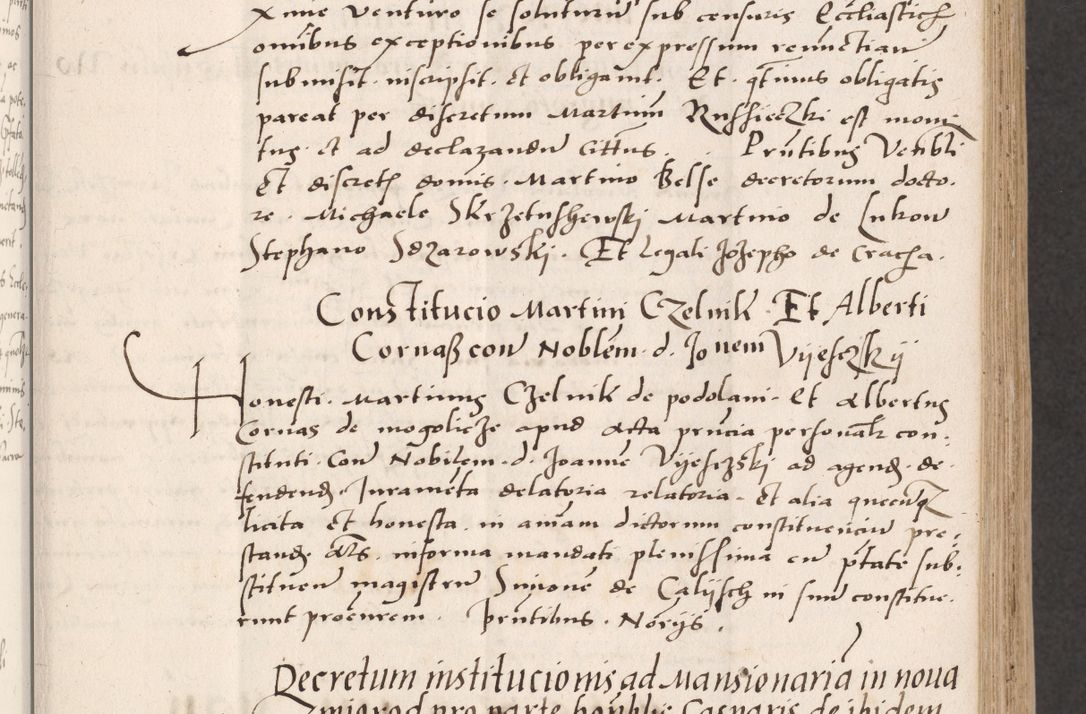 Xme venturo se soluturu sub censuris Eccliastich
omibus exceptionibus per expressum renuctian
submisit inscripsit et obligavit. Et qtenus obligatis
pareat per discretum Martinu Russieczki est moni
tus et ad declarandu cittus. Pntibus Venbli
et discretis domis Martino Belse decretorum docto.
re. Michaele Skrzetushewskj Martino de Lukow
Stephano Sdzarowskj. Et Legali Jozepho de Cracha.
Constitucio Martini Czelnik Et Alberti
Cornaß cou Noblem d. Jonem Vijesczkij
Honesti. Martinus Czelnik de podolani et Albertus
Cornas de mogolicze apud acta pncia personalr con-
stituti. Cou Nobilem d. Joanne Vijesczskj ad agend. de-
fendend. Jurameta delatoria relatoria et alia quecunq
licita et honesta in aimam dictorum constituenciu pre-
stand. in forma mandati plenissima cu ptate sub-
stituen magistru Simone de Calijsch in suu constitue-
runt procurem. pntibus. Norijs.
Decretum institucionis ad Mansionaria in nova
pro parte honblis Casparis de ibidem